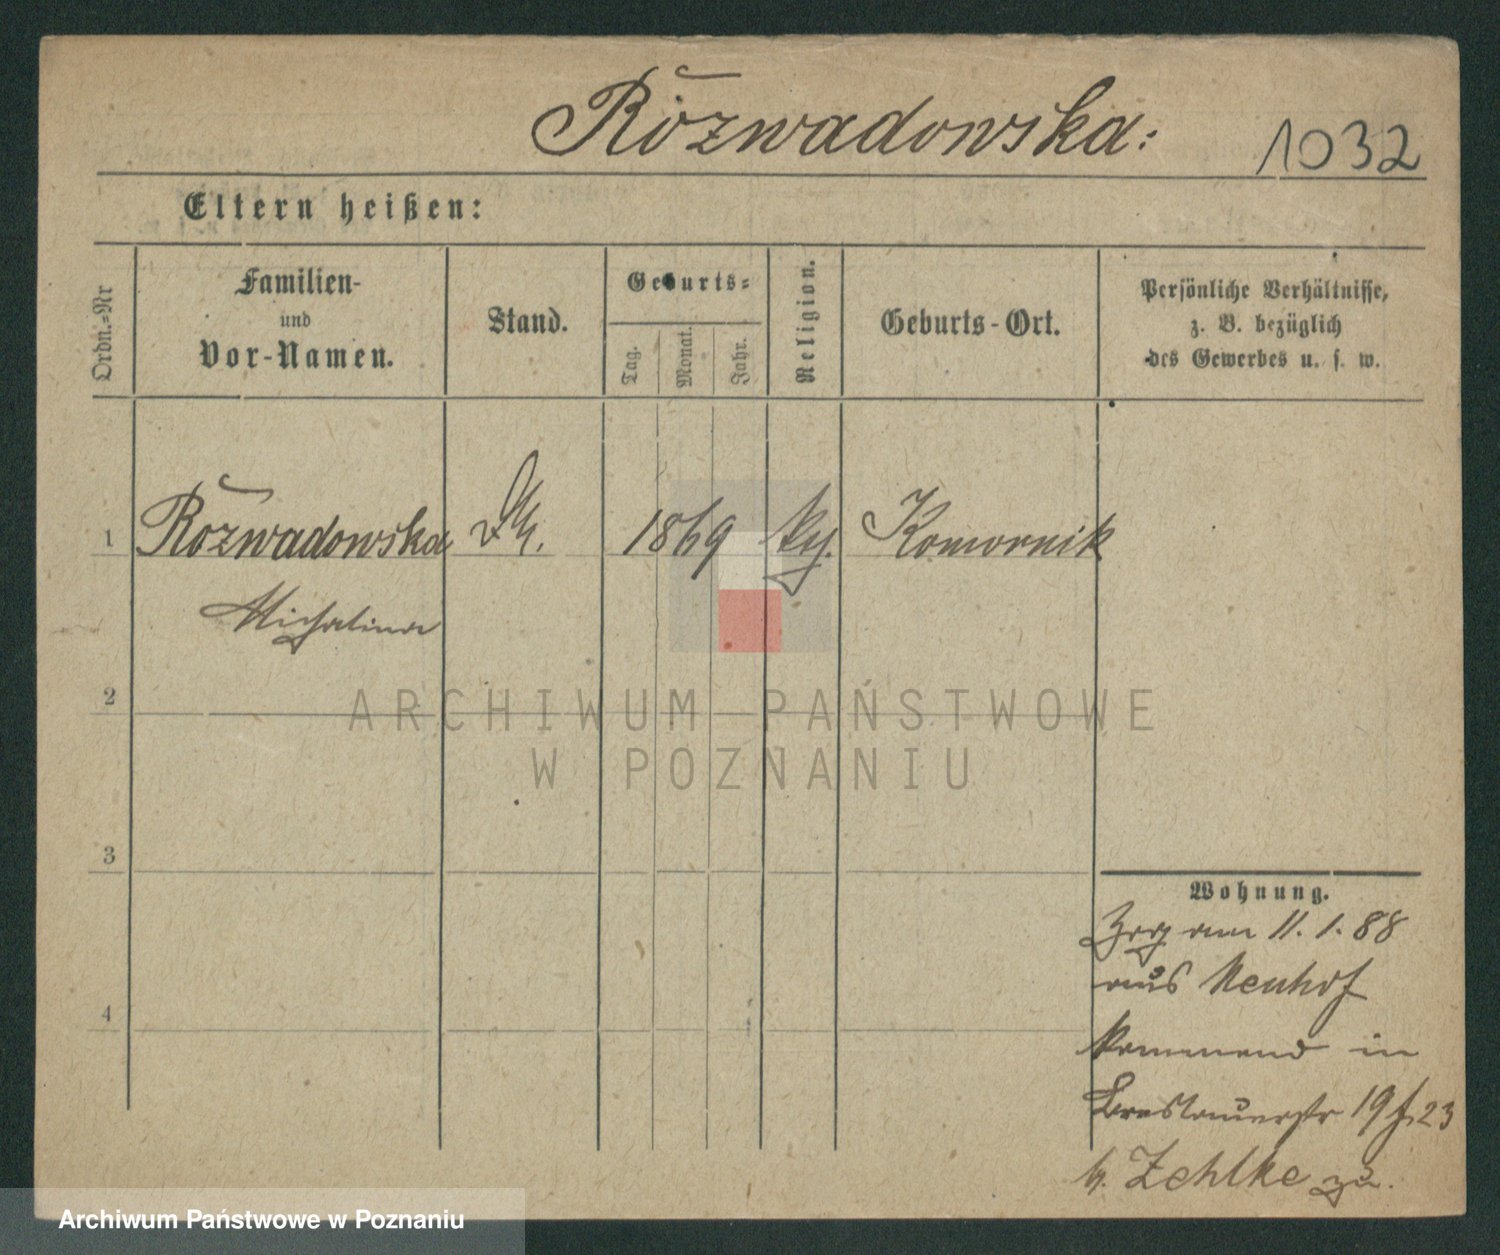 Rożwadowska:
1032
Eltern heißen:
Ordn.-Nr
Familien-
und
Vor-Namen.
Stand.
Geburts-
Tag.
Monat.
Jahr.
Religion.
Geburts-Ort.
Persönliche Verhältnisse,
z. B. bezüglich
des Gewerbes u. s. w.
1
Rożwadowska
1869
Komornik
Michalina
2
ARCHIWUM PAŃSTWOWE
W POZNANIU
3
Wohnung.
am 11.1.88
aus Neuhof
4
kommend in
Breslauerstr 19
b. Zehlke zu.
Archiwum Państwowe w Poznaniu